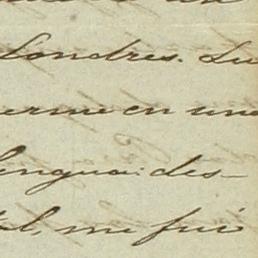 Londres. Su
erme en una
lengua: des-
tal, me fué